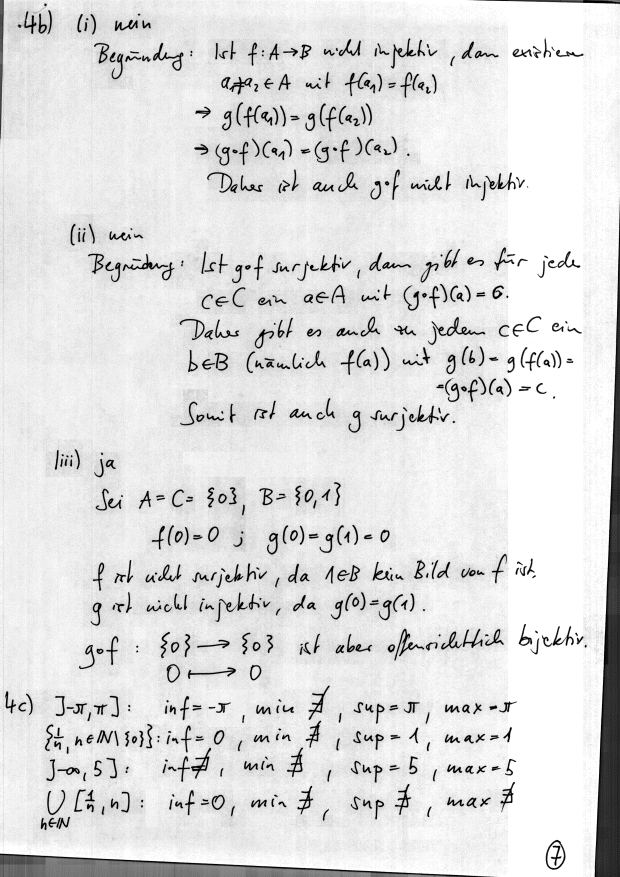 4b) (i) nein
Begründung: Ist f: A→B nicht injektiv, dann existieren
a₁≠a₂ ∈ A mit f(a₁) = f(a₂)
→ g(f(a₁)) = g(f(a₂))
→ (g∘f)(a₁) = (g∘f)(a₂).
Daher ist auch g∘f nicht injektiv.
(ii) nein
Begründung: Ist g∘f surjektiv, dann gibt es für jede
c∈C ein a∈A mit (g∘f)(a) = c.
Daher gibt es auch zu jedem c∈C ein
b∈B (nämlich f(a)) mit g(b) = g(f(a)) =
=(g∘f)(a) = c.
Somit ist auch g surjektiv.
(iii) ja
Sei A = C = {0}, B = {0,1}
f(0) = 0 ; g(0) = g(1) = 0
f ist nicht surjektiv, da 1∈B kein Bild von f ist.
g ist nicht injektiv, da g(0) = g(1).
g∘f : {0} → {0} ist aber offensichtlich bijektiv.
0 ↦ 0
4c) ]-π, π] : inf = -π, min ∄, sup = π, max = π
{1/n, n∈ℕ\{0}} : inf = 0, min ∄, sup = 1, max = 1
]-∞, 5] : inf ∄, min ∄, sup = 5, max = 5
⋃ [1/n, n] : inf = 0, min ∄, sup ∄, max ∄
n∈ℕ
7